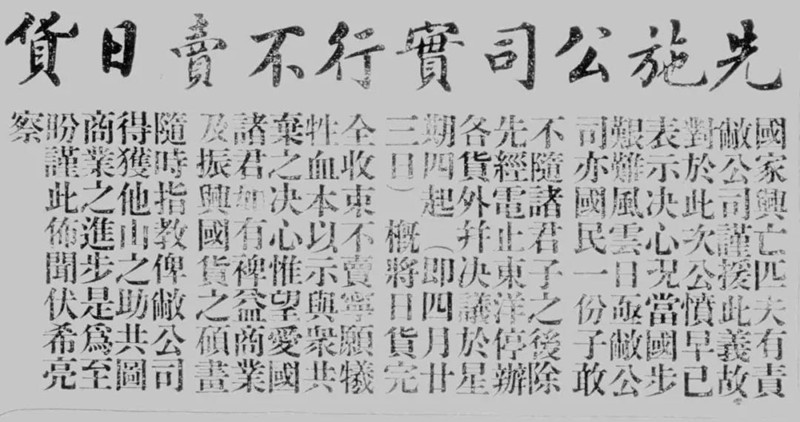 先施公司實行不賣日貨
國家興亡匹夫有責
敝公司謹援此義故
對於此次公憤早已
表示决心况當國步
艱難風雲日亟敝公
司亦國民一份子敢
不隨諸君子之後除
先經電止東洋停辦
各貨外幷决議於星
期四起（即四月廿
三日）概將日貨完
全收束不賣寧願犧
牲血本以示與衆共
棄之决心惟望愛國
諸君如有裨益商業
及振興國貨之碩畫
隨時指教俾敝公司
得獲他山之助共圖
商業之進步是爲至
盼謹此佈聞伏希亮
察